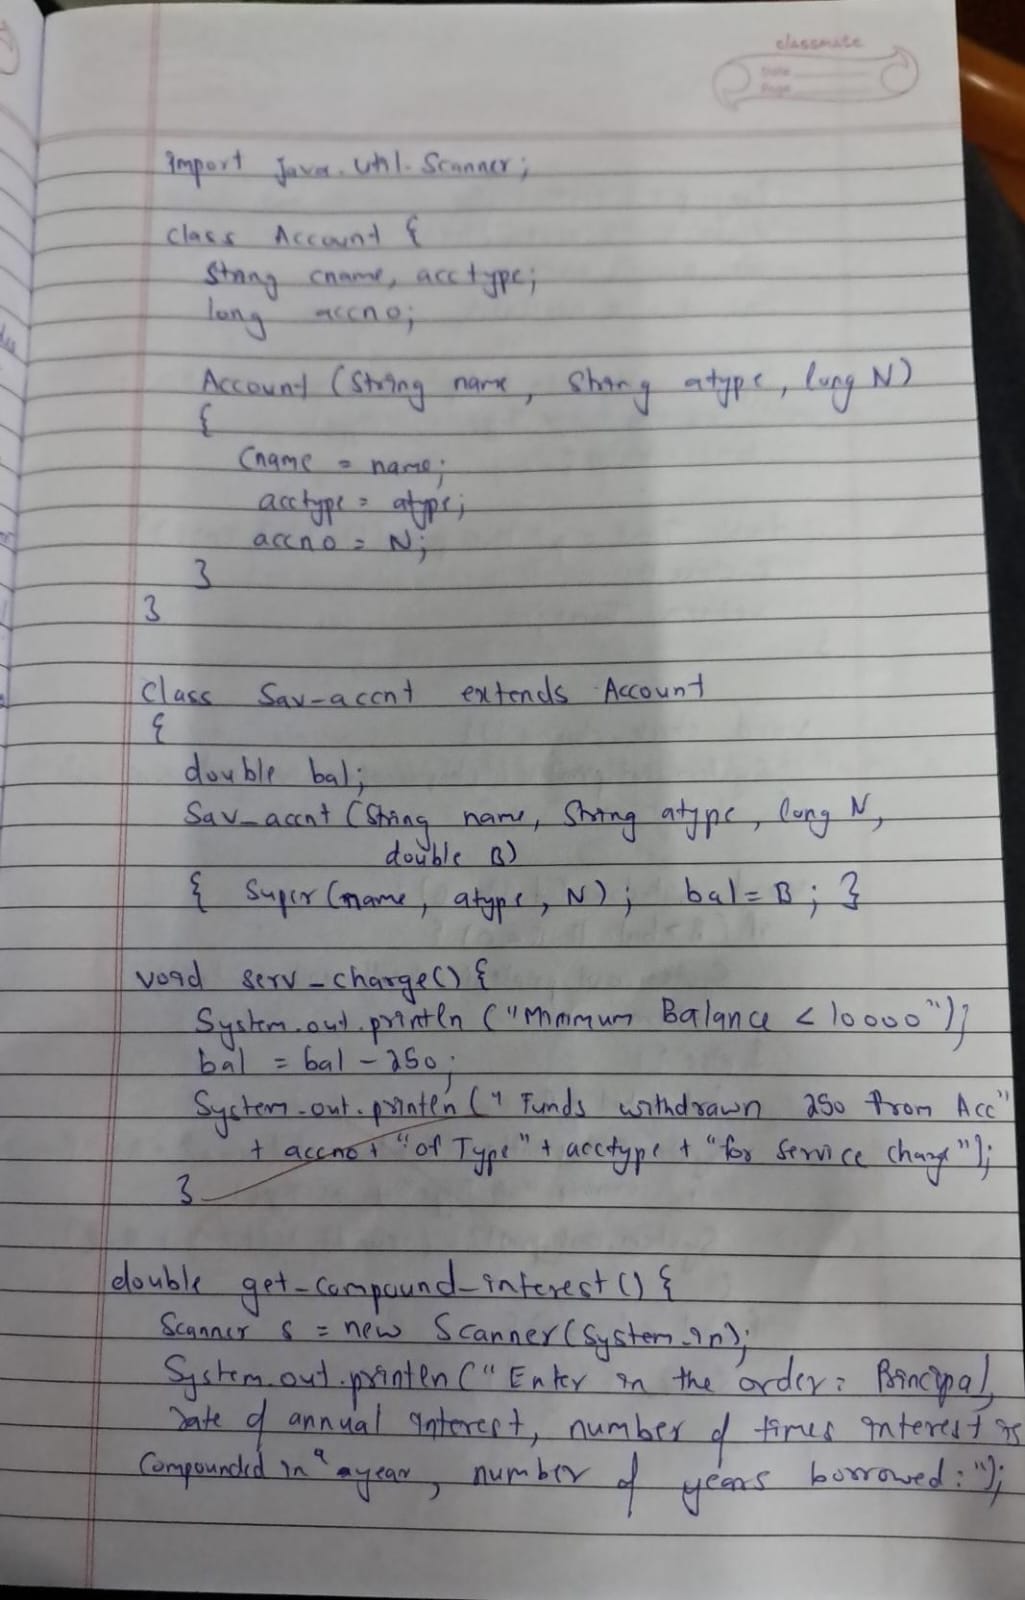 classmate
Date
Page
import Java.util.Scanner;
class Account {
String cname, acctype;
long accno;
Account (String name, String atype, long N)
{
cname = name;
acctype = atype;
accno = N;
}
}
Class Sav-accnt extends Account
{
double bal;
Sav_accnt (String name, String atype, long N,
double B)
{ super(name, atype, N); bal = B; }
void serv_charge() {
System.out.println ("Minimum Balance < 10000");
bal = bal - 250;
System.out.println (" Funds withdrawn 250 from Acc"
+ accno + "of Type" + acctype + "for service charge");
}
double get-compound-interest() {
Scanner s = new Scanner(System.in);
System.out.println (" Enter in the order: Principal,
rate of annual interest, number of times interest is
Compounded in a year, number of years borrowed:");